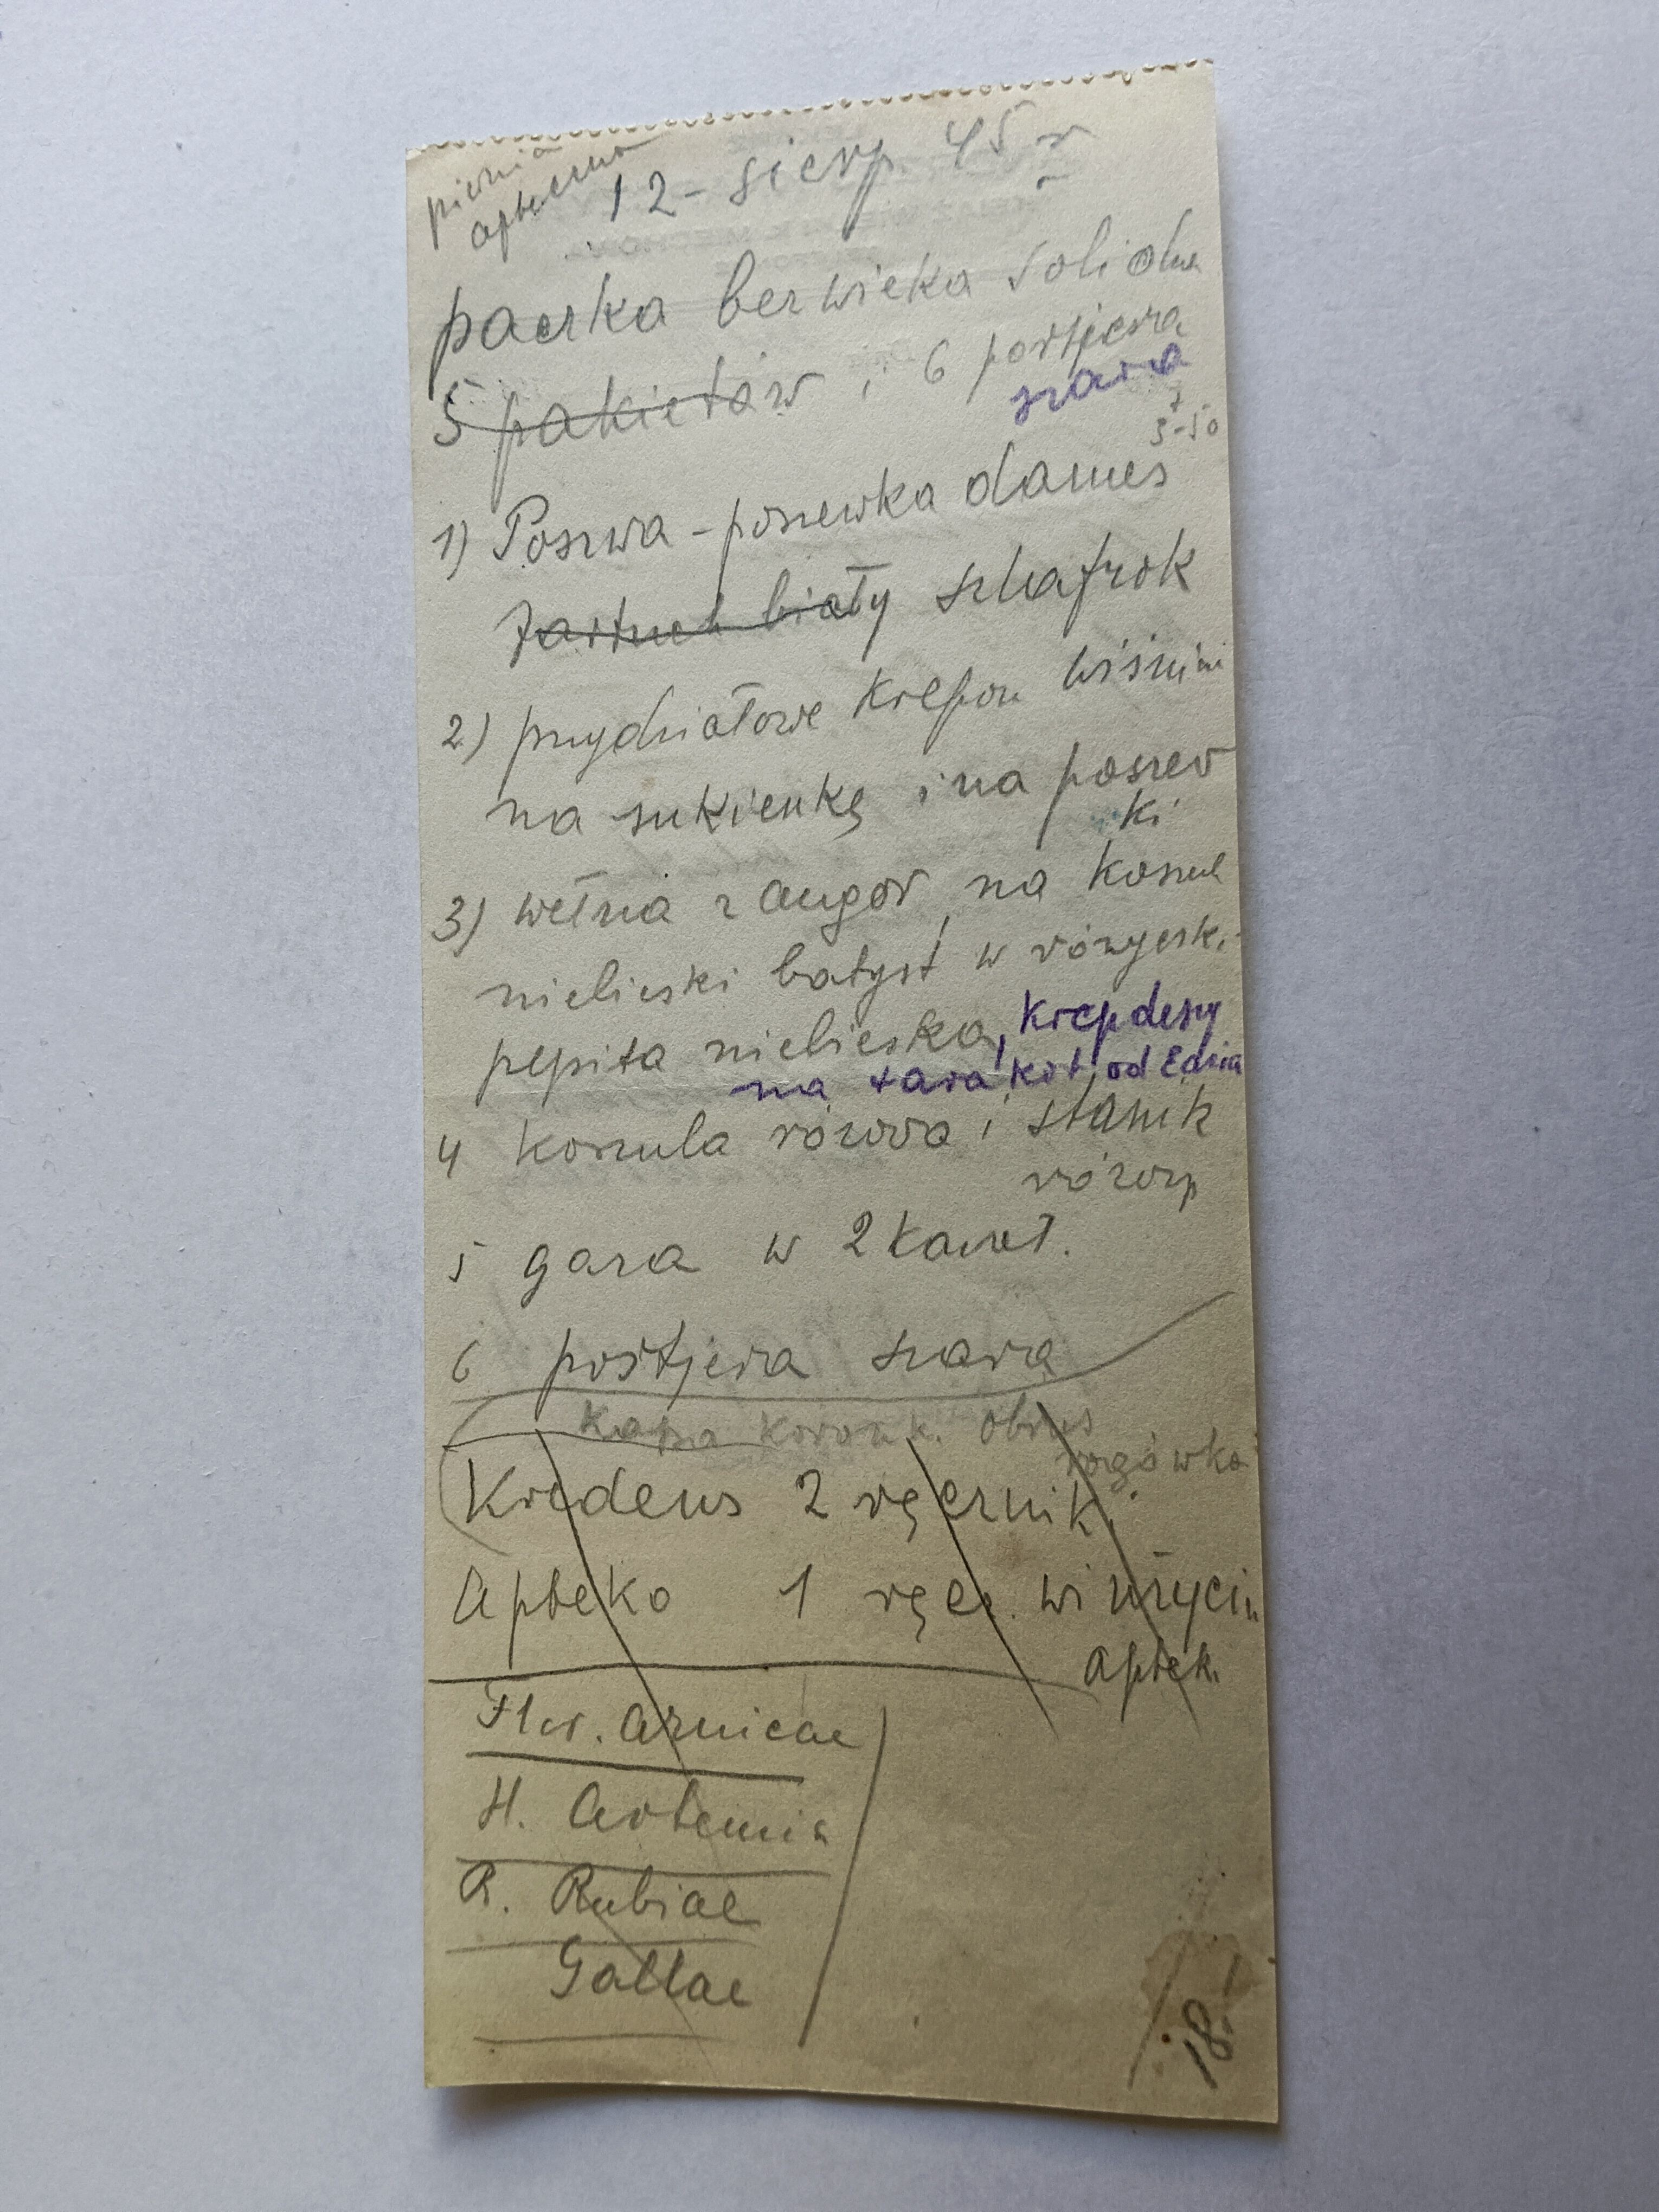 12 - sierp. 45 r
paczka bez wieka solidna
5 pakietów i 6 portjera
szara
3-50
1) Poszwa - poszewka dames
fartuch biały szlafrok
2) przydziałowe krepon wiśnini
na sukienkę i na poszew
ki
3) wełna z angor, na koszul
niebieski batyst w różyczki
pepita niebieska, krepdeszy
na tara kot od Edzia
4 koszula różowa i stanik
różowy
5 gaza w 2 kawał.
6 portjera szara
Kapa koronk. obrus
Kredens 2 ręczniki
Apteka 1 ręcz. w użyciu
Aptek.
Flor. Arnicae
H. Artemis
R. Rubiae
Gallae
18